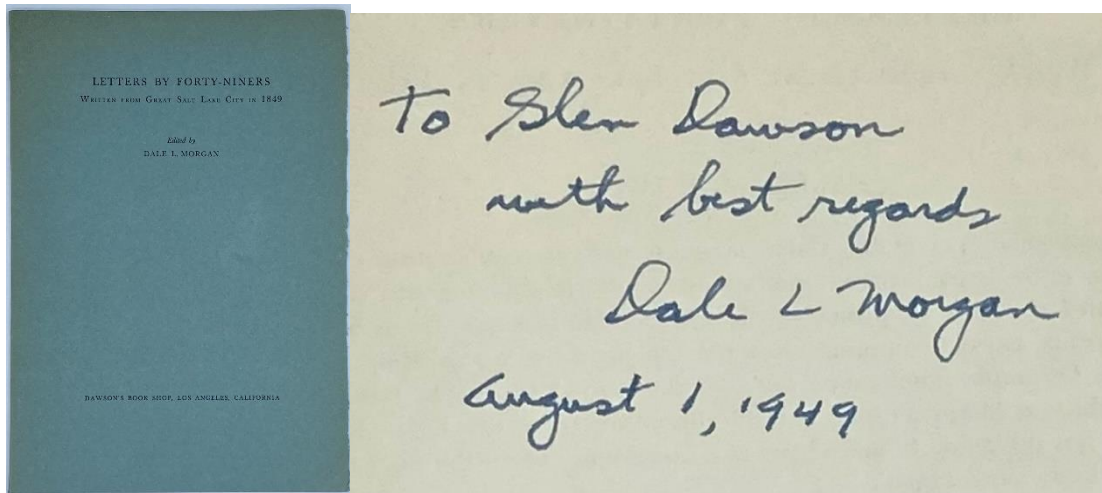 LETTERS BY FORTY-NINERS
WRITTEN FROM GREAT SALT LAKE CITY IN 1849
Edited by
DALE L. MORGAN
DAWSON'S BOOK SHOP, LOS ANGELES, CALIFORNIA
To Glen Dawson
with best regards
Dale L Morgan
August 1, 1949